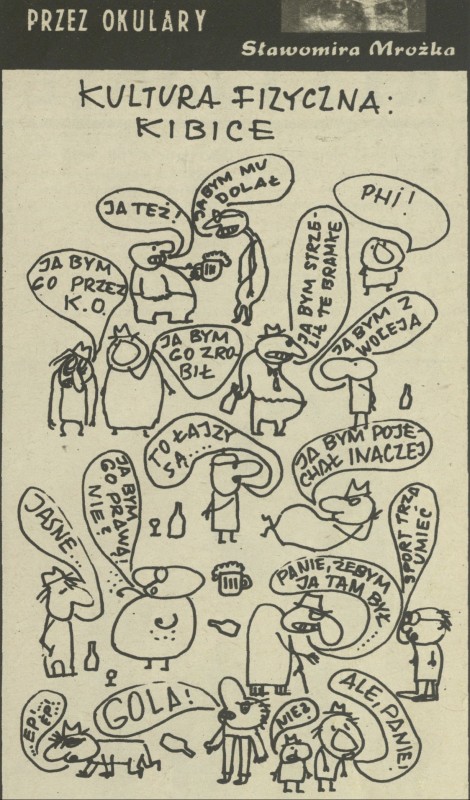 PRZEZ OKULARY
Sławomira Mrożka
KULTURA FIZYCZNA:
KIBICE
JA TEŻ!
JA BYM MU
DOLAŁ
PHI!
JA BYM
GO PRZEZ
K.O.
JA BYM
GO ZRO-
BIŁ
JA BYM STRZE-
LIŁ TE BRAMKE
JA BYM Z
WOLEJA
TO ŁAJZY
SĄ...
JA BYM POJE-
CHAŁ INACZEJ
JASNE...
JA BYM
GO PRAWĄ!
NIE?
PANIE, ŻEBYM
JA TAM BYŁ
....
SPORT TRZA
UMIEĆ
GOLA!
NIE?
ALE, PANIE!